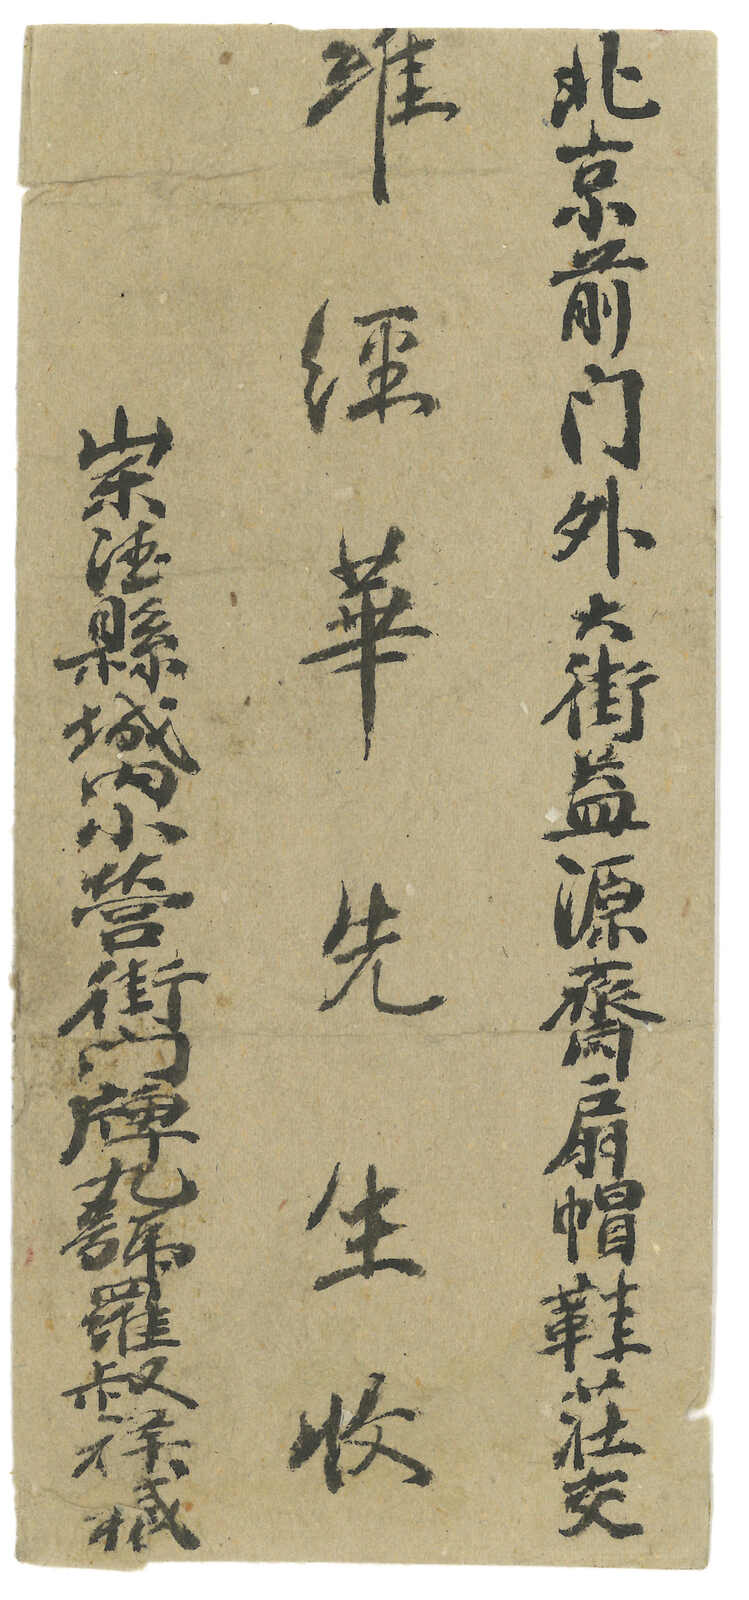 北京前门外大街益源齋扇帽鞋莊交
維經華先生收
崇德縣城內小營街門牌九號羅叔祥械